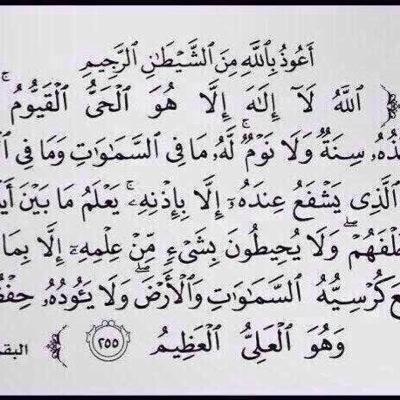 أَعُوذُ بِاللَّهِ مِنَ الشَّيْطَانِ الرَّجِيمِ
اللَّهُ لَآ إِلَٰهَ إِلَّا هُوَ الْحَىُّ الْقَيُّومُ ۚ
سِنَةٌ وَلَا نَوْمٌ ۚ لَّهُ مَا فِى السَّمَٰوَٰتِ وَمَا فِى
الَّذِى يَشْفَعُ عِندَهُۥٓ إِلَّا بِإِذْنِهِۦ ۚ يَعْلَمُ مَا بَيْنَ
وَلَا يُحِيطُونَ بِشَىْءٍ مِّنْ عِلْمِهِۦٓ إِلَّا بِمَا
كُرْسِيُّهُ السَّمَٰوَٰتِ وَالْأَرْضَ ۖ وَلَا يَئُودُهُۥ
وَهُوَ الْعَلِىُّ الْعَظِيمُ ٢٥٥